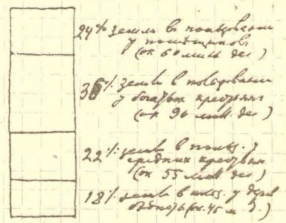 24% земли в пользовании
у помещиков
(ок 60 милл. дес)
36% земли в пользовании
у богатых крестьян
(ок 90 милл. дес)
22% земли в польз. у
средних крестьян
(ок 55 милл дес)
18% земли в польз. у дерев.
бедноты (ок. 45 м. д.)